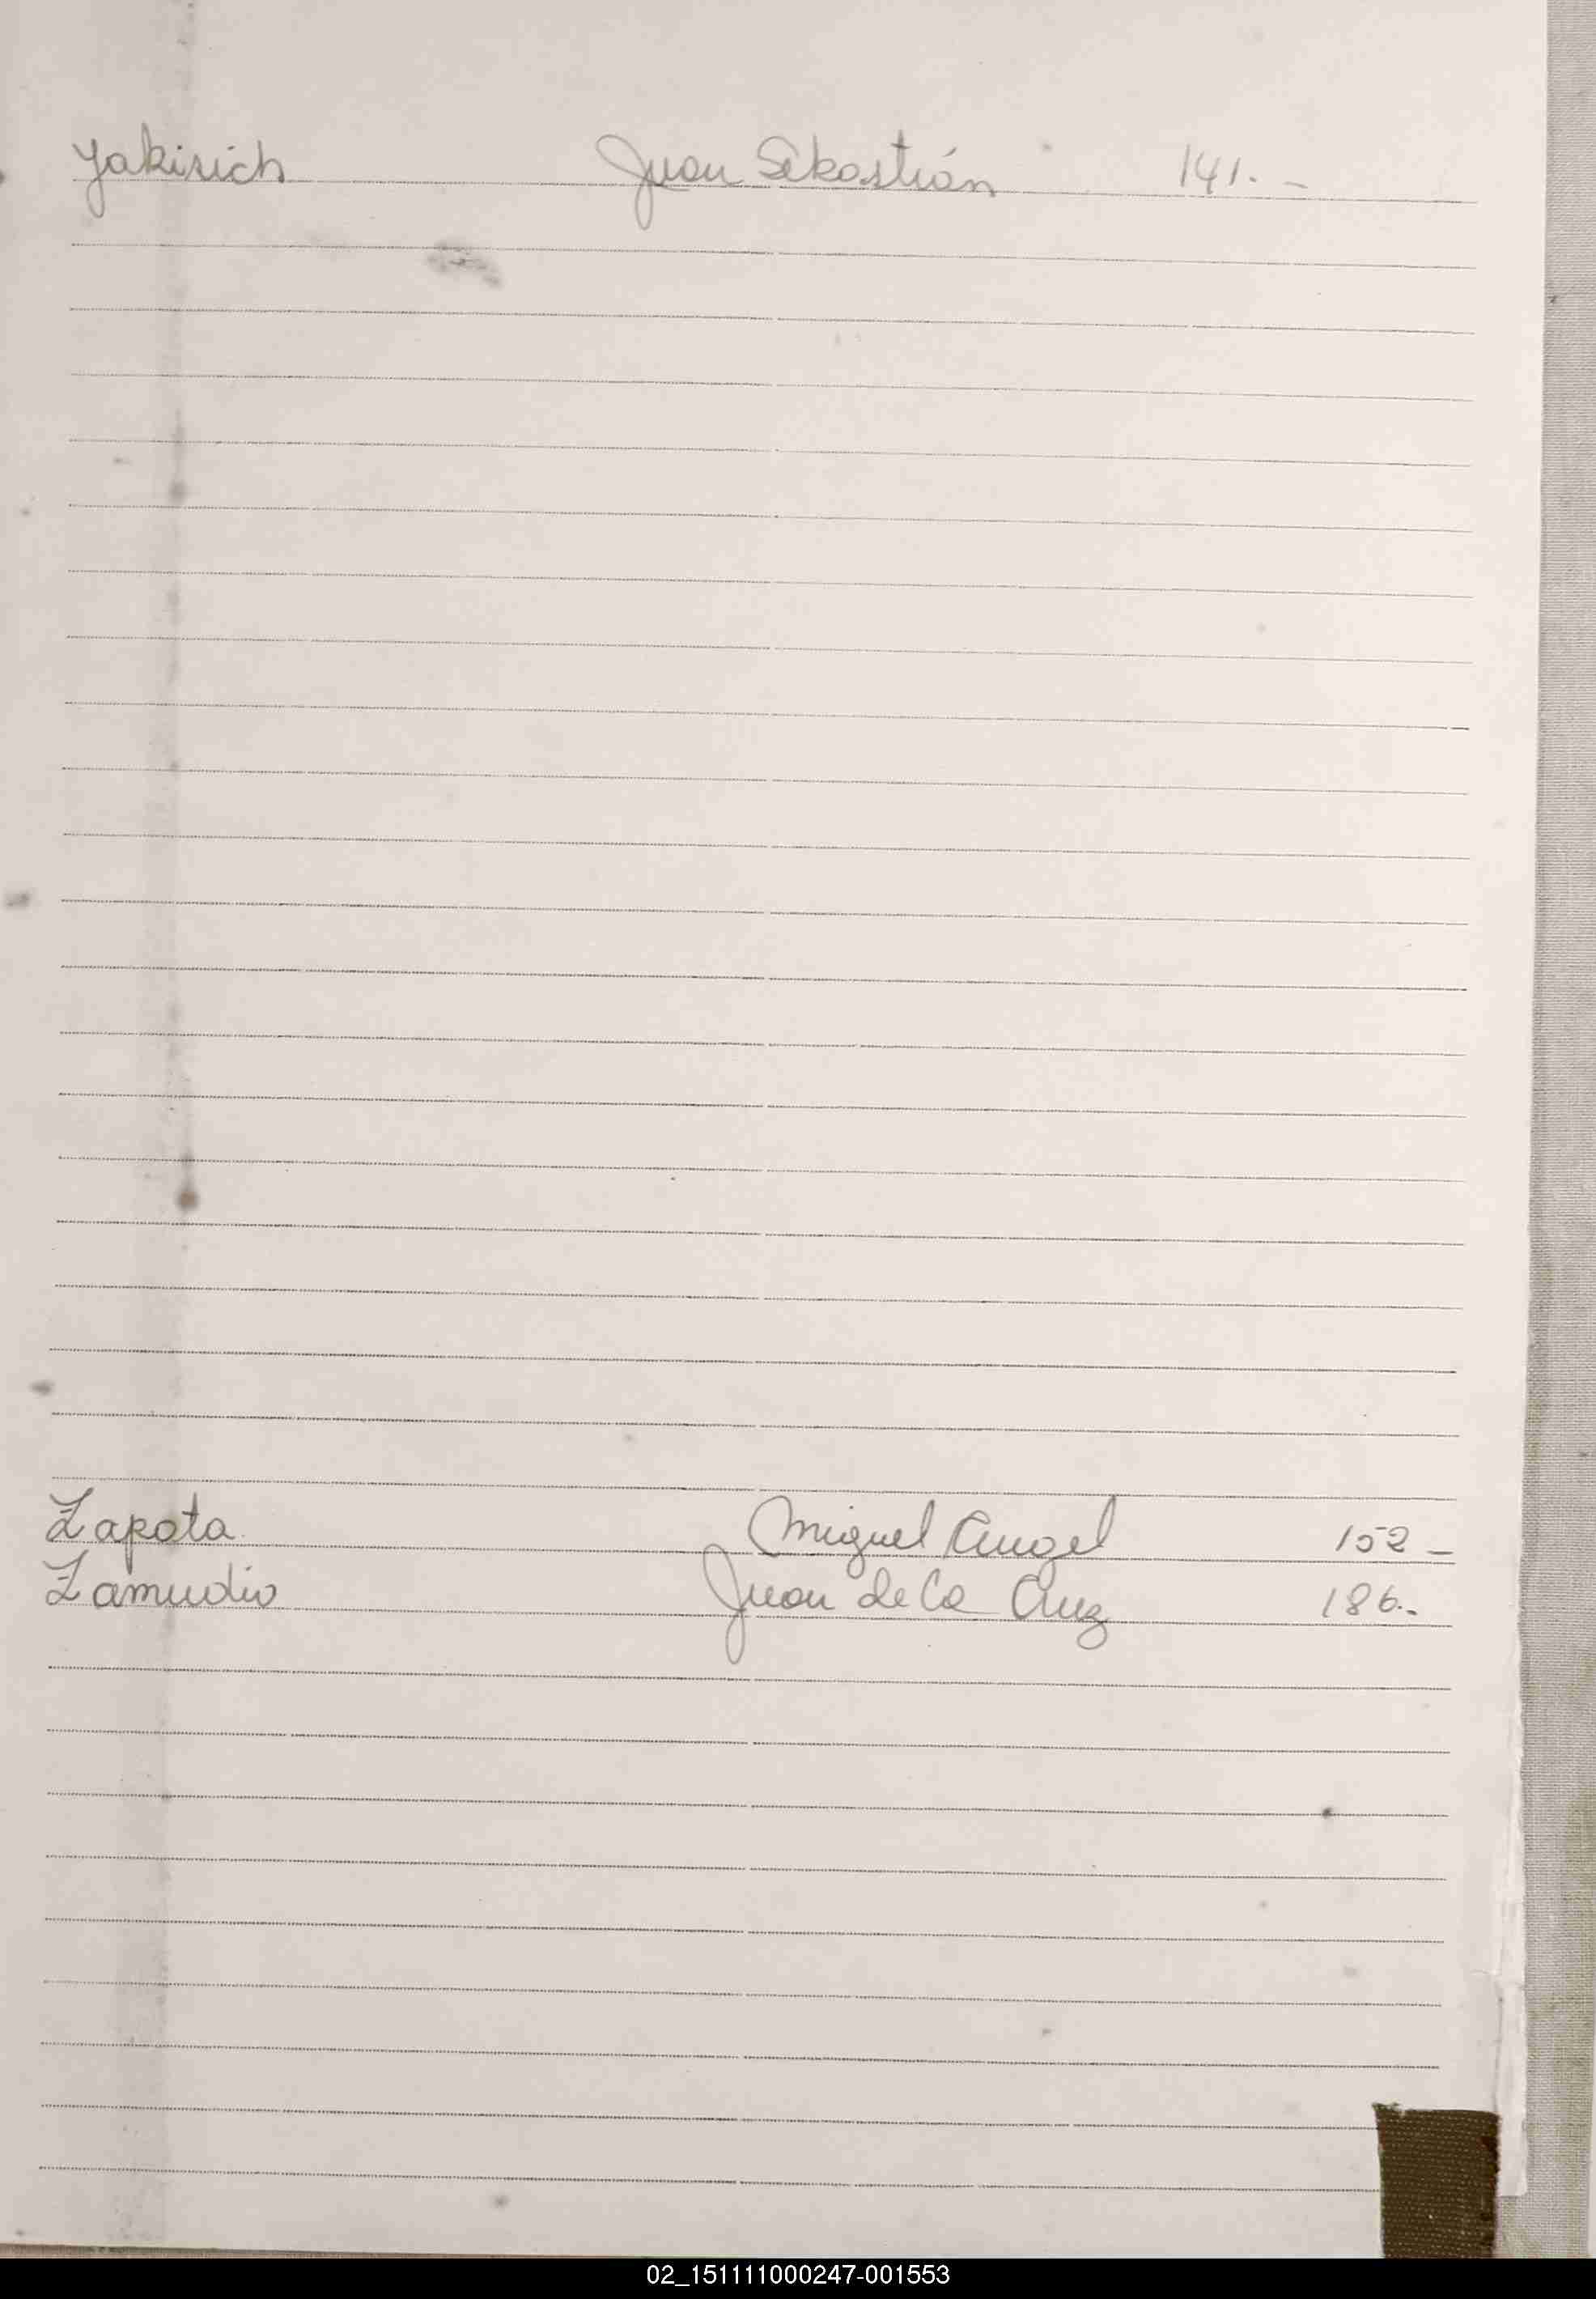 Yakisich Juan Sebastián 141. -
Zapata Miguel Angel 152 -
Zamudio Juan de la Cruz 186.-
02_151111000247-001553